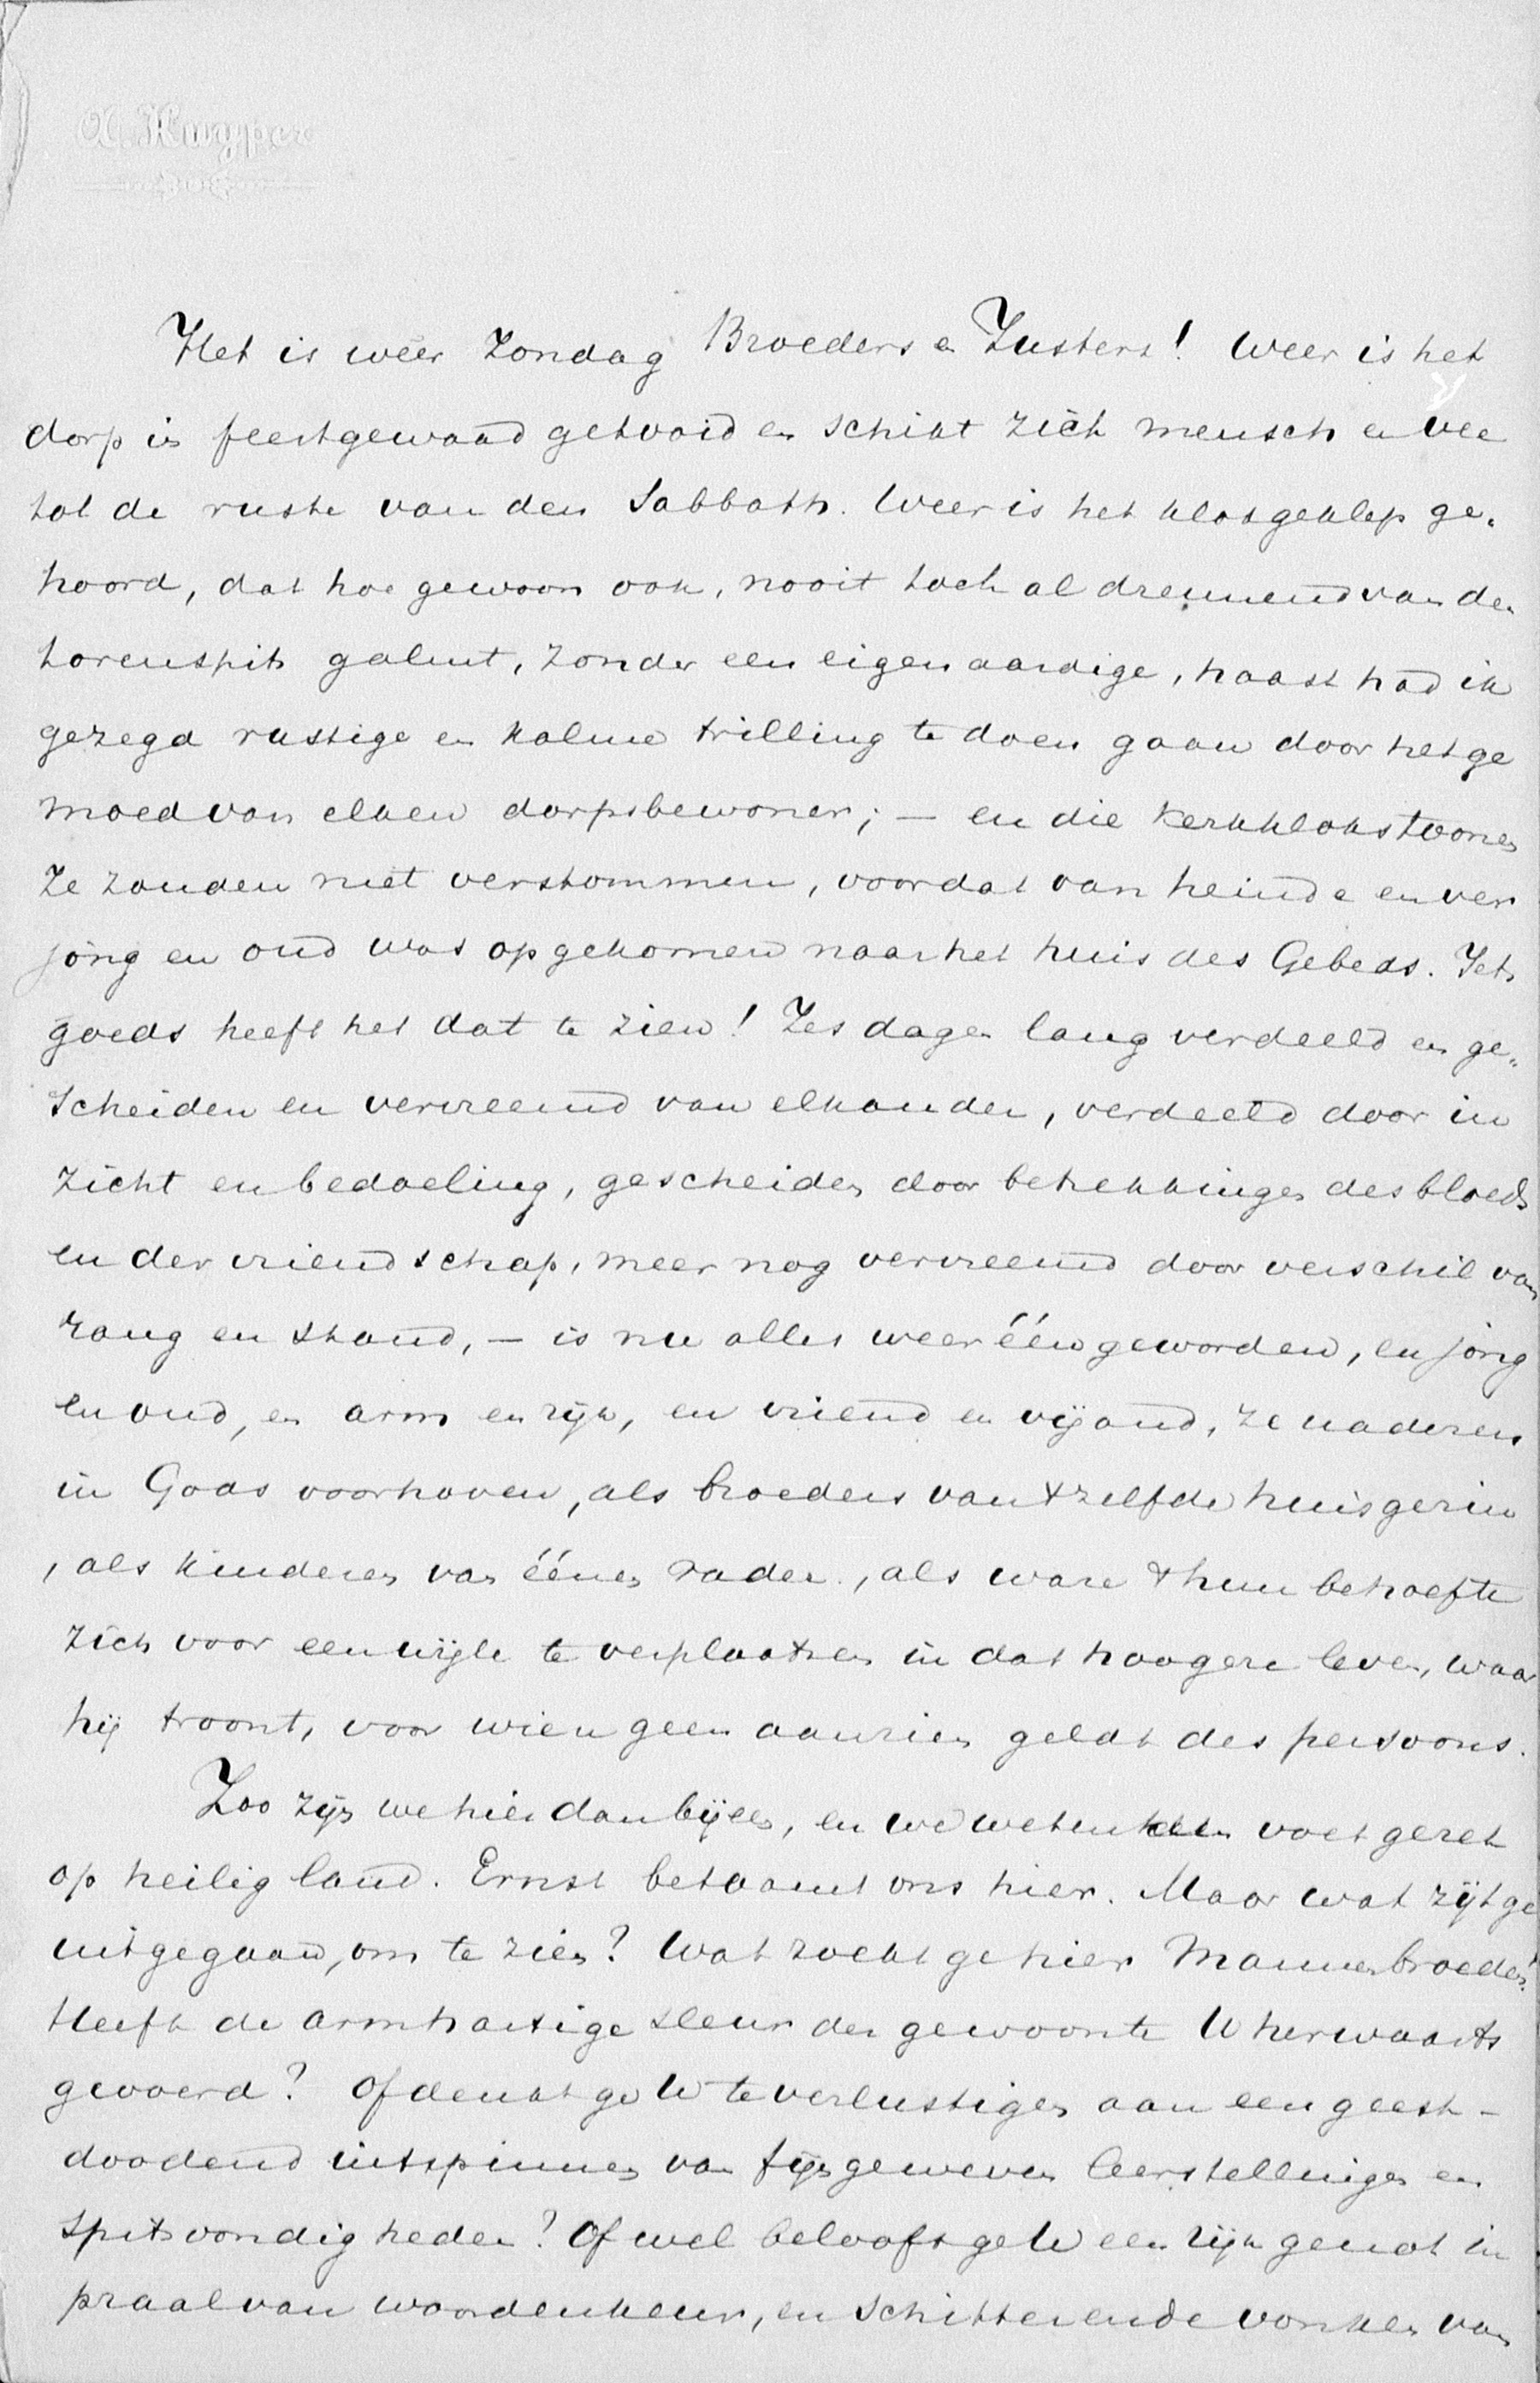 A. Kuyper
Het is weer Zondag Broeders en Zusters! Weer is het
dorp in feestgewaad getooid en schikt zich mensch en vee
tot de ruste van den Sabbath. Weer is het klokgeklep ge„
hoord, dat hoe gewoon ook, nooit toch al dreunend van den
torenspits galmt, zonder een eigenaardige, haast had ik
gezegd rustige en kalme trilling te doen gaan door het ge
moed van elken dorpsbewoner; – en die kerkkloks toonen
ze zouden niet verstommen, voordat van heinde en ver
jong en oud was opgekomen naar het huis des Gebeds. Iets
goeds heeft het dat te zien! Zes dagen lang verdeeld en ge„
scheiden en vervreemd van elkander, verdeeld door in
zicht en bedoeling, gescheiden door betrekkingen des bloeds
en der vriendschap, meer nog vervreemd door verschil van
rang en stand, – is nu alles weer één geworden, en jong
en oud, en arm en rijk, en vriend en vijand, ze naderen
in Gods voorhoven, als broeders van 't zelfde huisgezin
, als kinderen van éénen vader, als ware 't hun behoefte
zich voor een wijle te verplaatsen in dat hoogere leven, waar
hij troont, voor wien geen aanzien geldt des persoons.
Zoo zijn we hier dan bijeen, en we weten den voet gezet
op heilig land. Ernst betaamt ons hier. Maar wat zijt ge
uitgegaan, om te zien? Wat zoekt ge hier Mannenbroeders!
Heeft de armhartige sleur der gewoonte U herwaarts
gevoerd? Of denkt ge U te verlustigen aan een geest-
doodend uitspinnen van fijngeweven leerstellingen en
spitsvondigheden? Of wel belooft ge U een rijk genot in
praal van woordenkeur, en schitterende vonken van